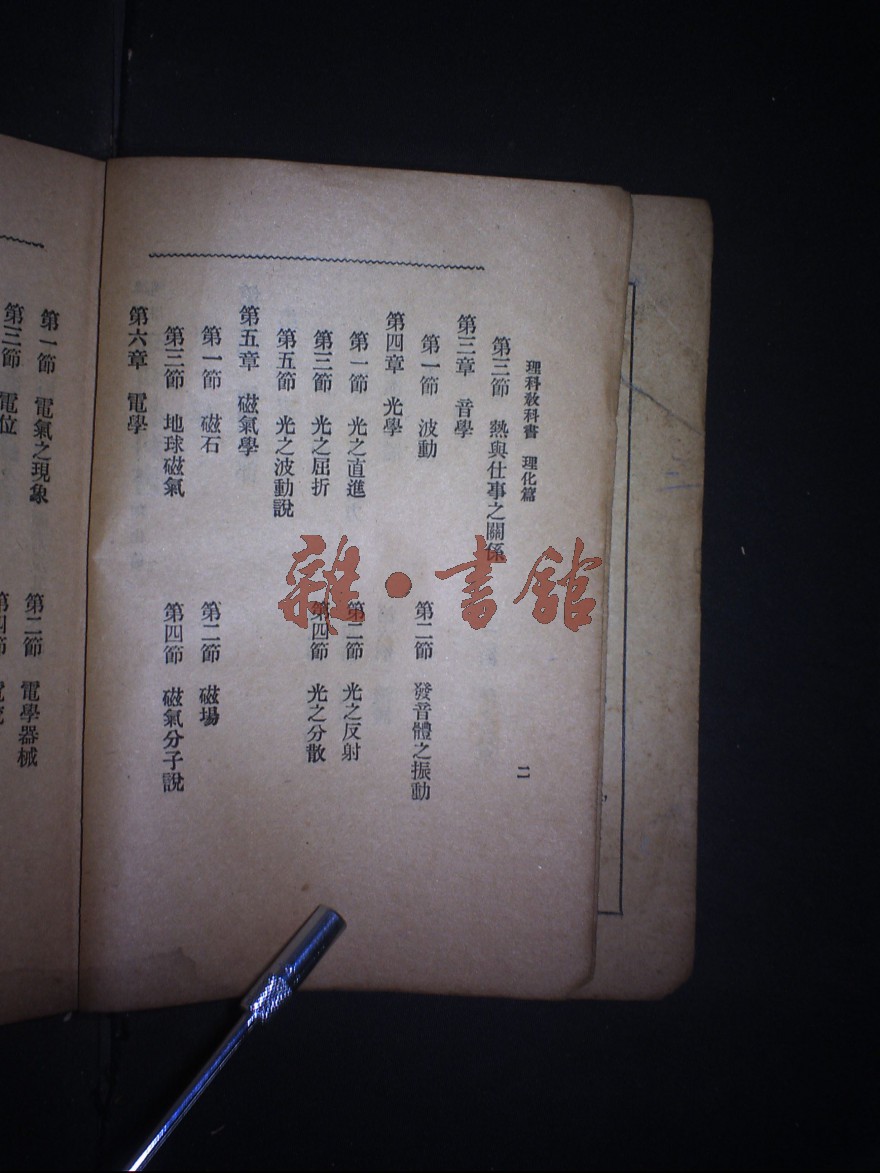 理科教科書 理化篇 二
第三節 熱與仕事之關係
第三章 音學
第一節 波動 第二節 發音體之振動
第四章 光學
第一節 光之直進 第二節 光之反射
第三節 光之屈折 第四節 光之分散
第五節 光之波動說
第五章 磁氣學
第一節 磁石 第二節 磁場
第三節 地球磁氣 第四節 磁氣分子說
第六章 電學
第一節 電氣之現象 第二節 電學器械
第三節 電位 第四節
雜·書館